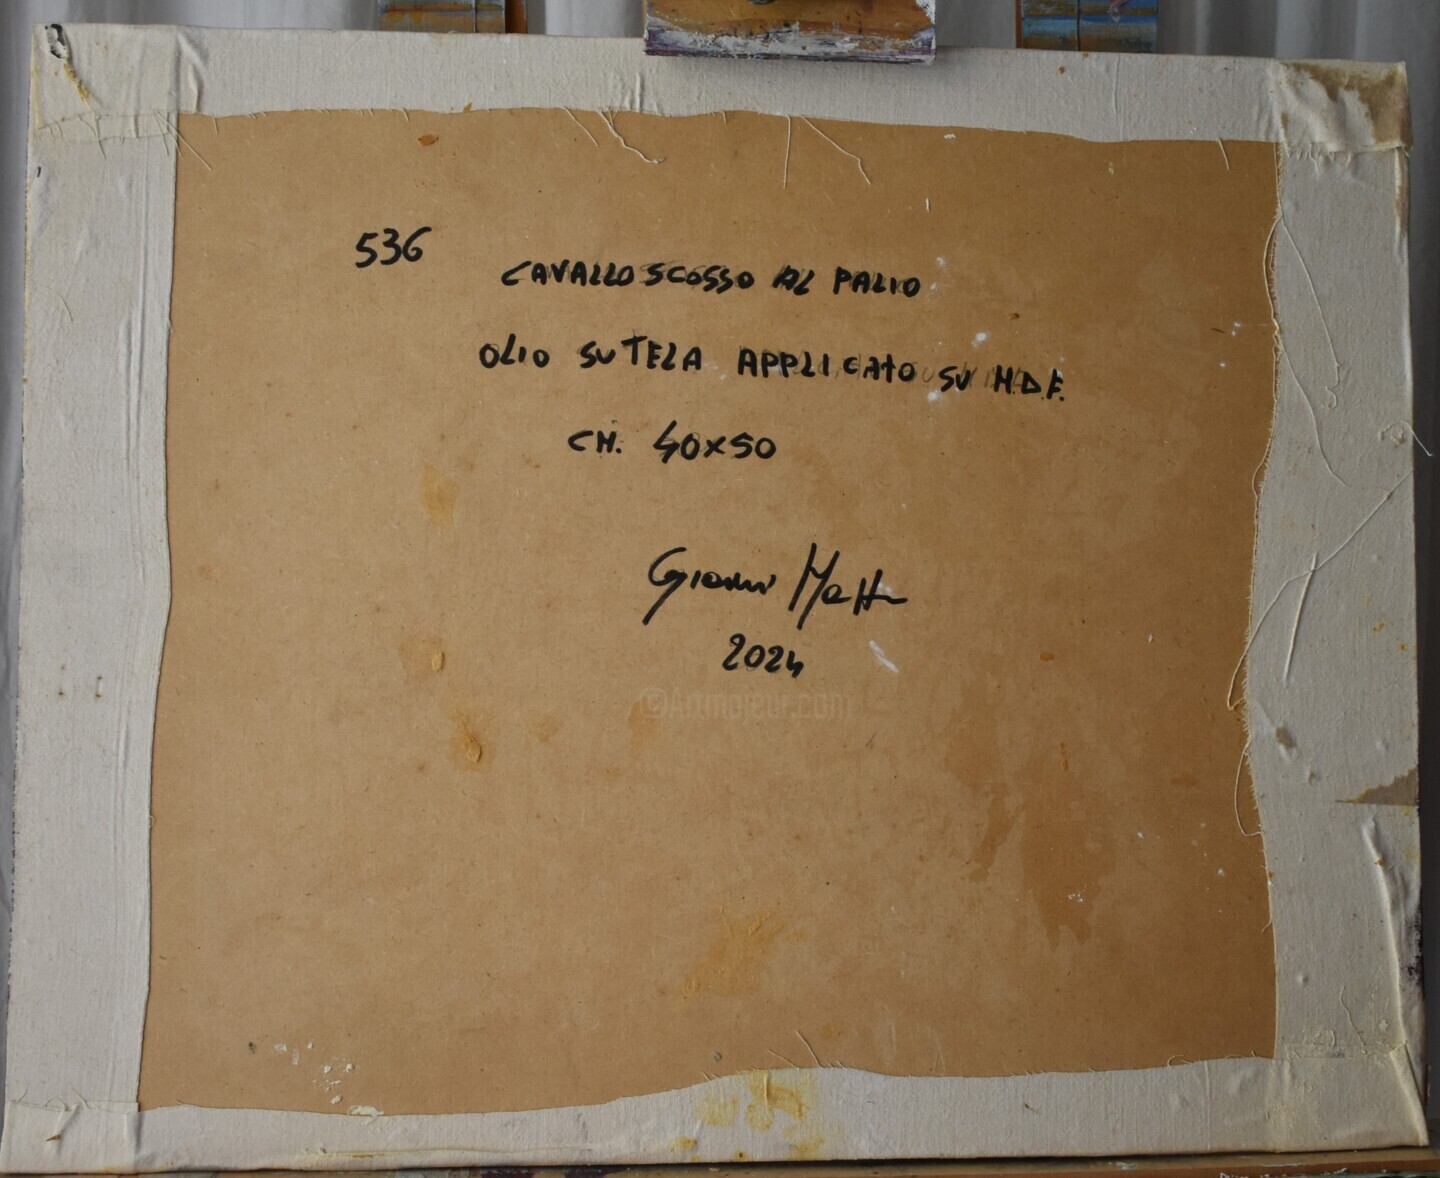 536
CAVALLO SCOSSO AL PALIO
OLIO SU TELA APPLICATO SU M.D.F.
CM. 40x50
Gianni Matt
2024
©Artmajeur.com